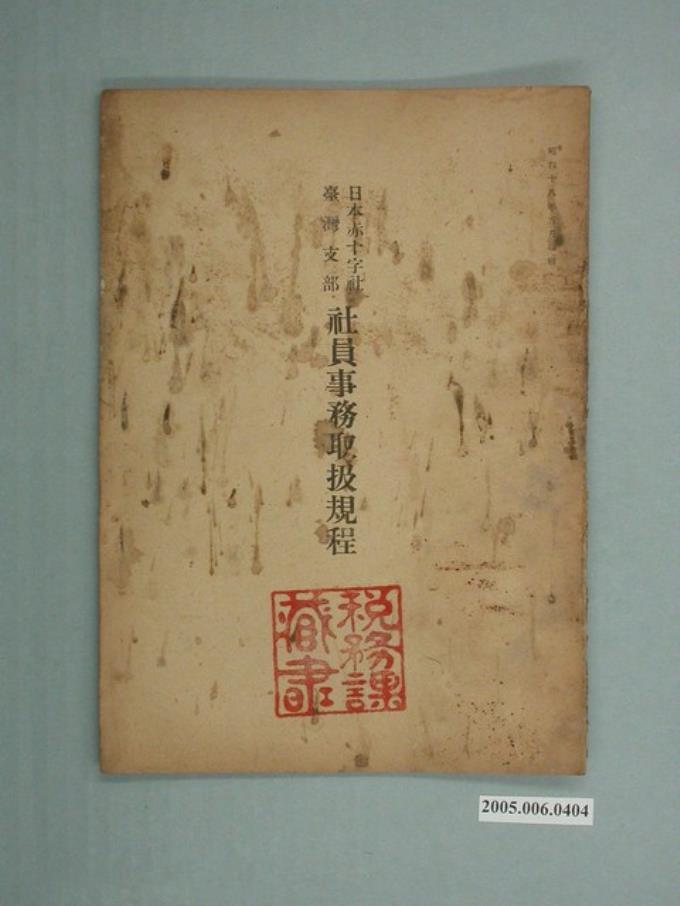 昭和十八年
日本赤十字社
臺灣支部
社員事務取扱規程
税務課
藏書
2005.006.0404